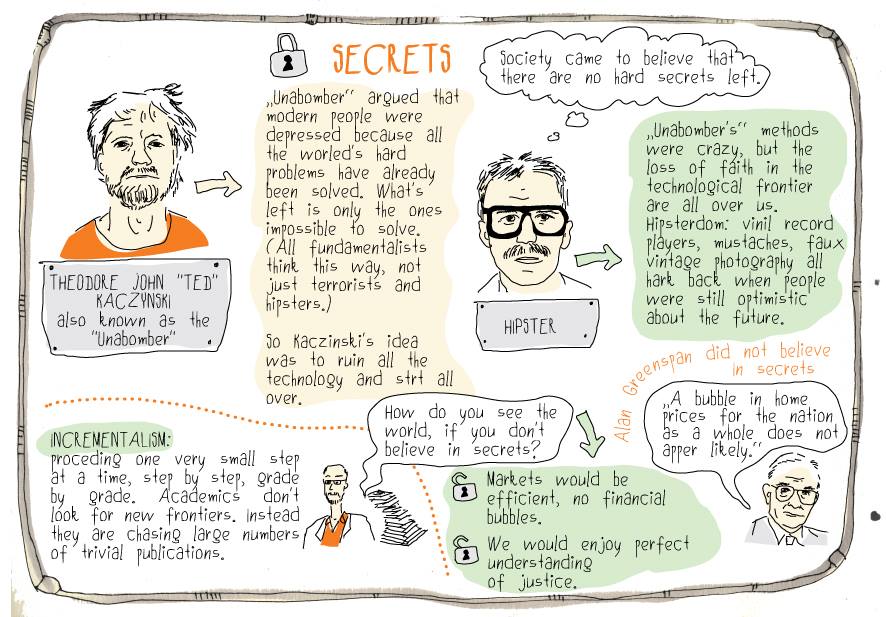 SECRETS
„Unabomber“ argued that
modern people were
depressed because all
the worled's hard
problems have already
been solved. What's
left is only the ones
impossible to solve.
(All fundamentalists
think this way, not
just terrorists and
hipsters.)
So Kaczinski's idea
was to ruin all the
technology and strt all
over.
THEODORE JOHN "TED"
KACZYNSKI
also known as the
"Unabomber"
Society came to believe that
there are no hard secrets left.
HIPSTER
„Unabomber's“ methods
were crazy, but the
loss of faith in the
technological frontier
are all over us.
Hipsterdom: vinil record
players, mustaches, faux
vintage photography all
hark back when people
were still optimistic
about the future.
INCREMENTALISM:
proceding one very small step
at a time, step by step, grade
by grade. Academics don't
look for new frontiers. Instead
they are chasing large numbers
of trivial publications.
How do you see the
world, if you don't
believe in secrets?
Markets would be
efficient, no financial
bubbles.
We would enjoy perfect
understanding
of justice.
Alan Greenspan did not believe
in secrets
„A bubble in home
prices for the nation
as a whole does not
apper likely.“